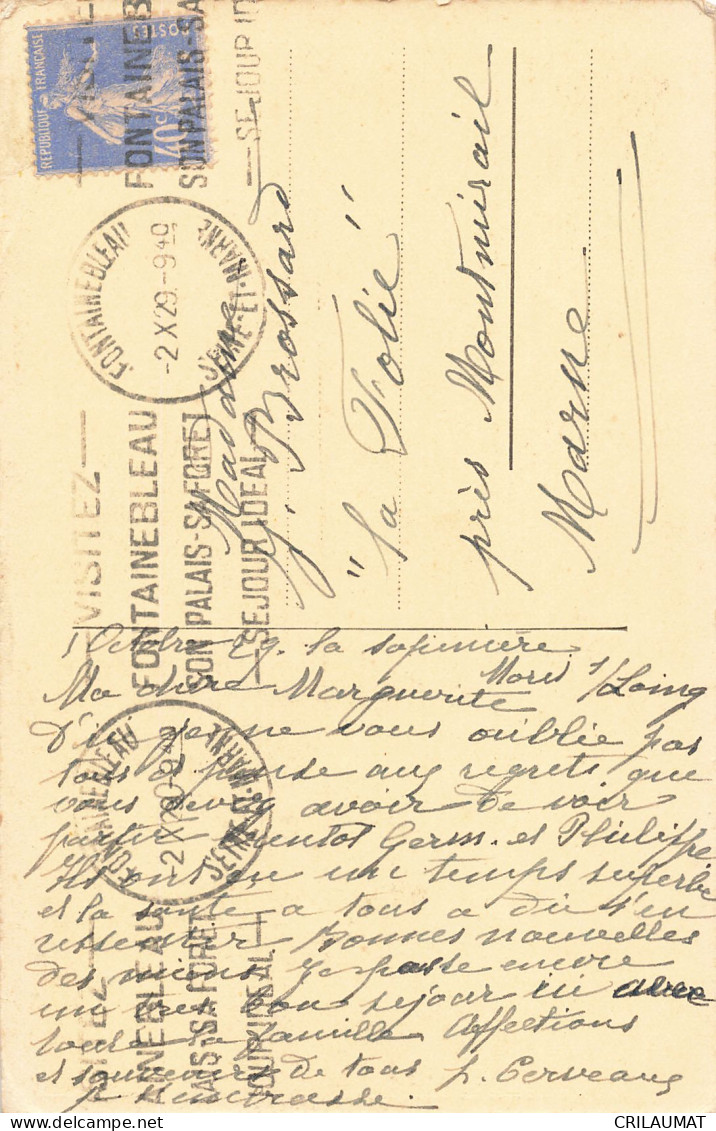 REPUBLIQUE FRANÇAISE
POSTES
40c
FONTAINEBLEAU
SEINE-ET-MARNE
-2 X 29.-9 40
VISITEZ
FONTAINEBLEAU
SON PALAIS-SA FORET
SEJOUR IDEAL
FONTAINEBLEAU
SEINE-ET-MARNE
-2 X 29.-9 40
Madame
G. Brossard
"la Folie"
près Montmirail
Marne
1 Octobre 29. la sapinière
Moret s/Loing
Ma chère Marguerite
D'ici je ne vous oublie pas
tous je pense aux regrets que
vous devez avoir de voir
partir bientot Germ. et Philippe
Ils ont eu un temps superbe
et la santé a tous a dû s'en
ressentir Bonnes nouvelles
des miens. Je passe encore
un très bon sejour ici avec
toute la famille Affections
et souvenirs de tous
CRILAUMAT